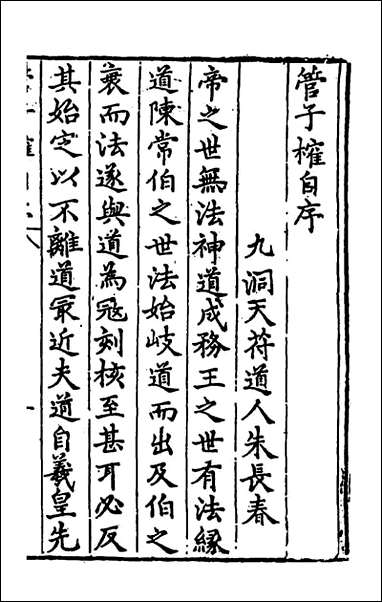 管子榷自序
九洞天符道人朱長春
帝之世無法神道成務王之世有法緣
道陳常伯之世法始岐道而出及伯之
衰而法遂與道為冦刻核至甚耳必反
其始定以不離道冣近夫道自羲皇先